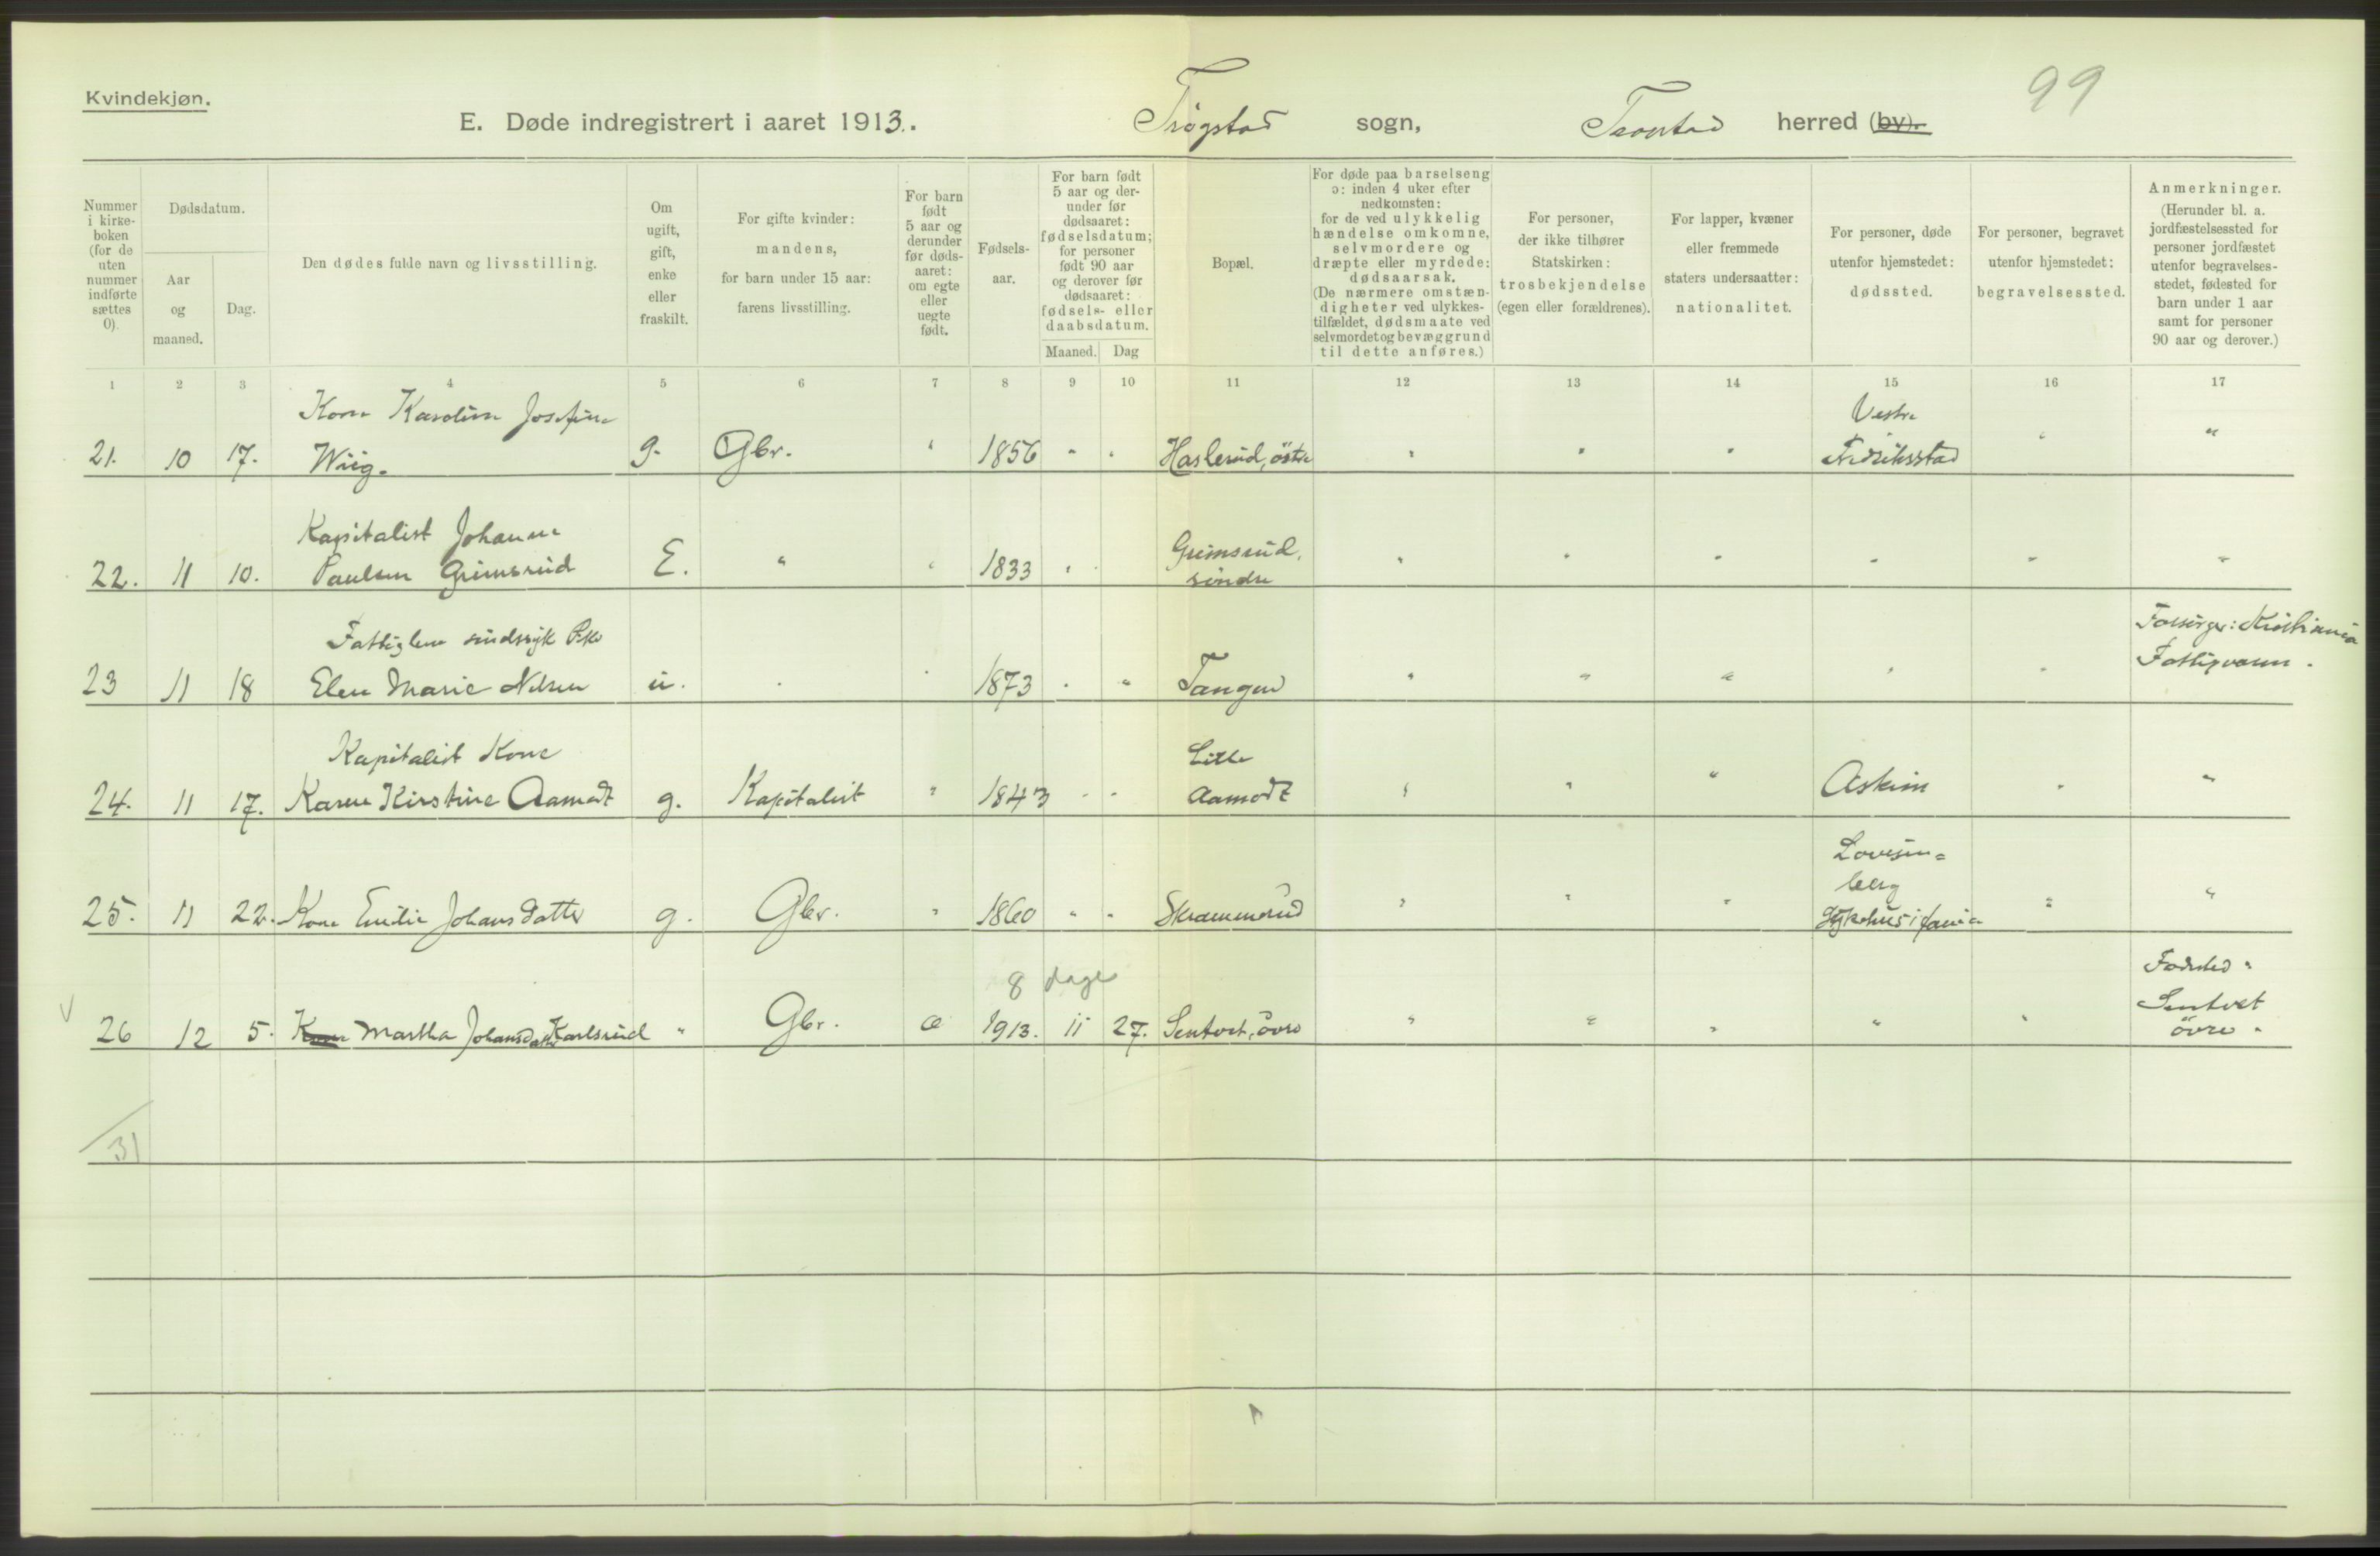 Kvindekjøn.
99
E. Døde indregistrert i aaret 1913.
Trøgstad sogn, Trøgstad herred (by).
Nummer i kirke-boken (for de uten nummer indførte sættes 0).
Dødsdatum.
Aar og maaned.
Dag.
Den dødes fulde navn og livsstilling.
Om ugift, gift, enke eller fraskilt.
For gifte kvinder: mandens, for barn under 15 aar: farens livsstilling.
For barn født 5 aar og derunder før døds-aaret: om egte eller uegte født.
Fødsels-aar.
For barn født 5 aar og der-under før dødsaaret: fødselsdatum; for personer født 90 aar og derover før dødsaaret: fødsels- eller daabsdatum.
Maaned.
Dag
Bopæl.
For døde paa barselseng ɔ: inden 4 uker efter nedkomsten: for de ved ulykkelig hændelse omkomne, selvmordere og dræpte eller myrdede: dødsaarsak. (De nærmere omstæn-digheter ved ulykkes-tilfældet, dødsmaate ved selvmordet og bevæggrund til dette anføres.)
For personer, der ikke tilhører Statskirken: trosbekjendelse (egen eller forældrenes).
For lapper, kvæner eller fremmede staters undersaatter: nationalitet.
For personer, døde utenfor hjemstedet: dødssted.
For personer, begravet utenfor hjemstedet: begravelsessted.
Anmerkninger. (Herunder bl. a. jordfæstelsessted for personer jordfæstet utenfor begravelses-stedet, fødested for barn under 1 aar samt for personer 90 aar og derover.)
1 2 3 4 5 6 7 8 9 10 11 12 13 14 15 16 17
Kone Karoline Josefine
Vestre
21. 10 17. Wiig. g. Gbr. " 1856 " " Haslerud, östre " " " Fredriksstad " "
Kapitalist Johanne
Grimsrud,
22. 11 10. Paulsen Grimsrud E. " " 1833 " " söndre " " " " " "
Fattiglem sindssyk Pike
Forsörger: Kristiania
23 11 18 Elen Marie Nilsen u. " " 1873 " " Tangen " " " " " Fattigvæsen.
Kapitalist Kone
Lille
24. 11 17. Karen Kirstine Aamodt g. Kapitalist " 1843 " " Aamodt " " " Askim " "
Lovisen=
berg
25. 11 22. Kone Emilie Johansdatter g. Gbr. " 1860 " " Skrammerud " " " Sykehus i "
8 dage
Födested "
Sentvet
26 12 5. Kone Martha Johansdatter Karlsrud " Gbr. æ 1913. 11 27. Sentvet, övre " " " " " övre "
31